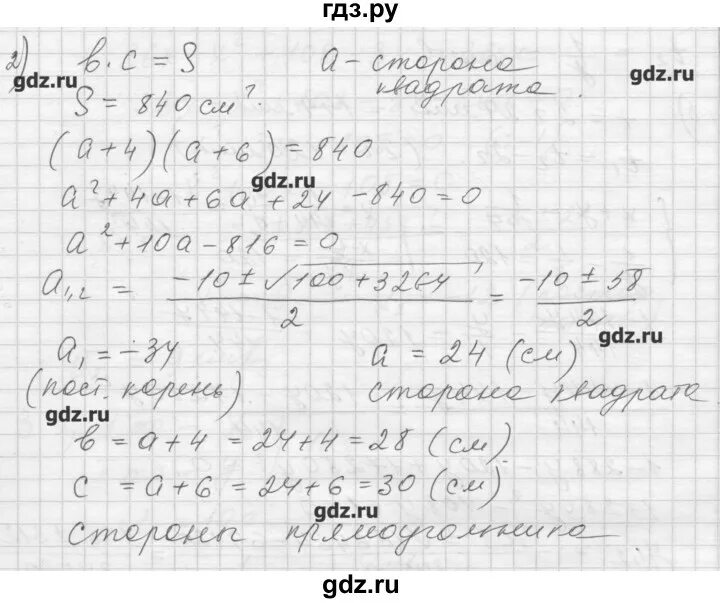 гдз.ру
2) в · c = S a - сторона
gdz.ru квадрата. gdz.ru
S = 840 см².
(a+4)(a+6) = 840
gdz.ru
a² + 4a + 6a + 24 - 840 = 0
a² + 10a - 816 = 0
a₁,₂ = (-10 ± √(100 + 3264)) / 2 = (-10 ± 58) / 2
gdz.ru
a₁ = -34 a = 24 (см)
(пост. корень) сторона квадрата
gdz.ru
в = a + 4 = 24 + 4 = 28 (см)
c = a + 6 = 24 + 6 = 30 (см)
gdz.ru
стороны прямоугольника
gdz.ru